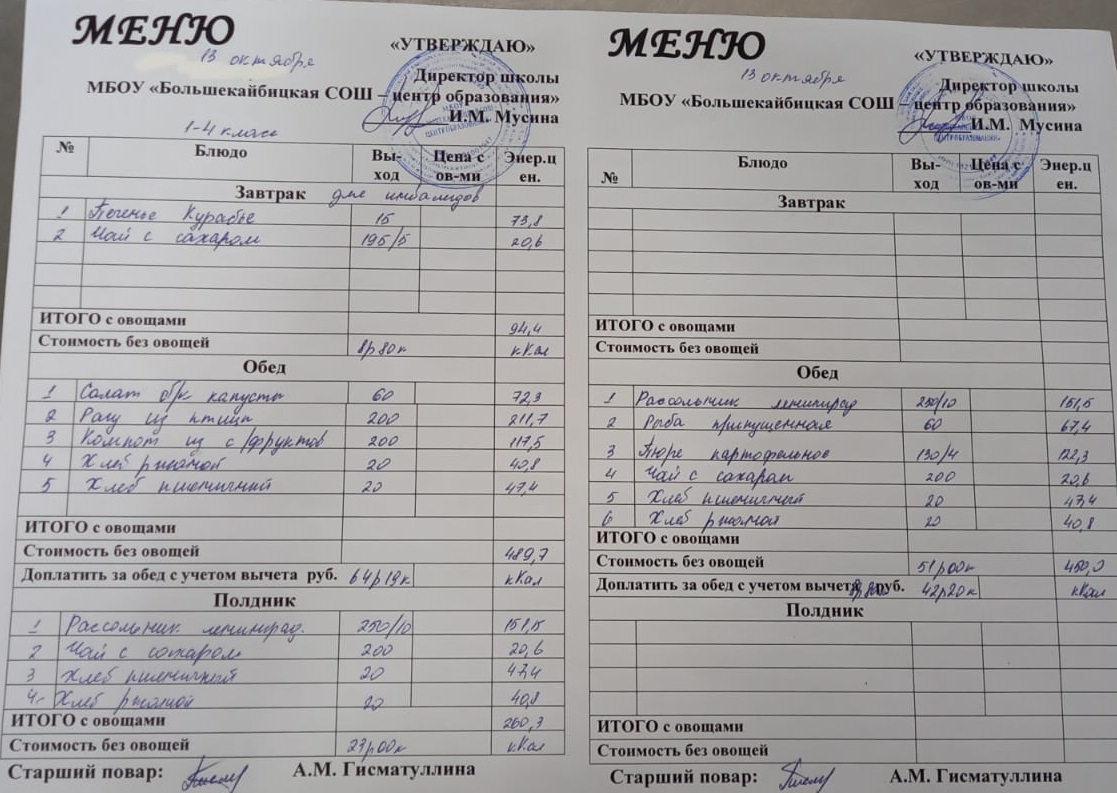 МЕНЮ
13 октября
«УТВЕРЖДАЮ»
Директор школы
МБОУ «Большекайбицкая СОШ – центр образования»
И.М. Мусина
1-4 класс
№ Блюдо Вы-ход Цена с ов-ми Энер.ц ен.
Завтрак для инвалидов
1 Печенье Курабье 15 73,8
2 Чай с сахаром 195/5 20,6
ИТОГО с овощами 94,4
Стоимость без овощей 8р80к кКал
Обед
1 Салат б/к капусты 60 72,3
2 Рагу из птицы 200 211,7
3 Компот из с/фруктов 200 117,5
4 Хлеб ржаной 20 40,8
5 Хлеб пшеничный 20 47,4
ИТОГО с овощами
Стоимость без овощей 489,7
Доплатить за обед с учетом вычета руб. 64р19к кКал
Полдник
1 Рассольник ленинград. 250/10 151,5
2 Чай с сахаром 200 20,6
3 Хлеб пшеничный 20 47,4
4 Хлеб ржаной 20 40,8
ИТОГО с овощами 260,3
Стоимость без овощей 23р00к кКал
Старший повар: А.М. Гисматуллина
МЕНЮ
13 октября
«УТВЕРЖДАЮ»
Директор школы
МБОУ «Большекайбицкая СОШ – центр образования»
И.М. Мусина
№ Блюдо Вы-ход Цена с ов-ми Энер.ц ен.
Завтрак
ИТОГО с овощами
Стоимость без овощей
Обед
1 Рассольник ленинград 250/10 151,5
2 Рыба припущенная 60 67,4
3 Пюре картофельное 130/4 122,3
4 Чай с сахаром 200 20,6
5 Хлеб пшеничный 20 47,4
6 Хлеб ржаной 20 40,8
ИТОГО с овощами
Стоимость без овощей 51р00к 450,0
Доплатить за обед с учетом вычета руб. 42р20к кКал
Полдник
ИТОГО с овощами
Стоимость без овощей
Старший повар: А.М. Гисматуллина